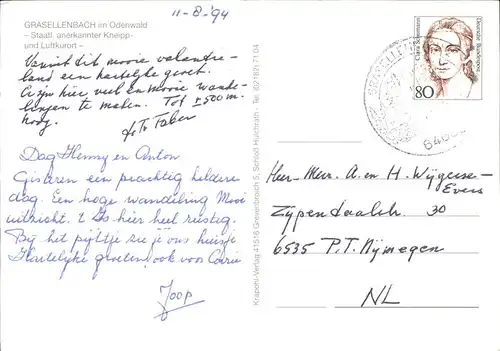 11-8-'94
GRASELLENBACH im Odenwald
– Staatl. anerkannter Kneipp-
und Luftkurort –
Vanuit dit mooie vakantie-
land een hartelijke groet.
Er zijn hier veel en mooie wande-
lingen te maken. Tot ± 500 m.
hoog.
Jo To Taber
Dag Henny en Anton
Gisteren een prachtig heldere
dag. Een hoge wandeling Mooi
uitzicht. 't Is hier heel rustig.
Bij het pijltje zie je ons huisje
Hartelijke groeten, ook voor Corrie
Joop
Krapohl-Verlag 41516 Grevenbroich 5, Schloß Hülchrath · Tel. (02182) 71 04
Clara Schumann
Deutsche Bundespost
80
GRASELLENBACH
Heer-Mevr. A. en H. Wijgerse-
Evers
Zypendaalsch. 30
6535 P.T. Nijmegen
NL